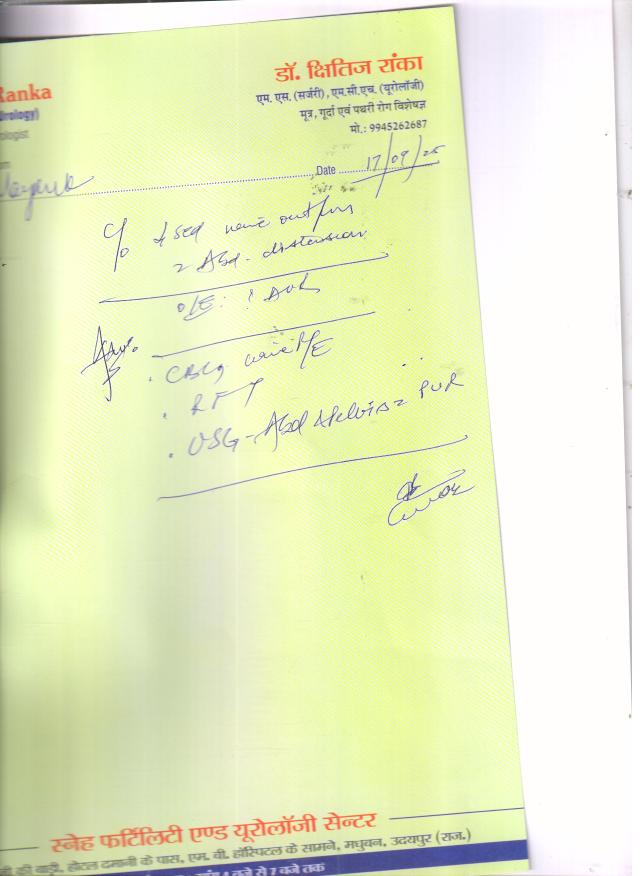 Ranka
डॉ. क्षितिज रांका
Urology)
एम. एस. (सर्जरी), एम.सी.एच. (यूरोलॉजी)
ologist
मूत्र, गूर्दा एवं पथरी रोग विशेषज्ञ
मो.: 9945262687
, Date 17/09/25
C/o ↓sed urine output
Abd. distension
O/E: ? AUR
Adv.
. CBC, urine R/E
. RFT
. USG - Abd & pelvis PVR
स्नेह फर्टिलिटी एण्ड यूरोलॉजी सेन्टर
की बाड़ी, होटल दमानी के पास, एम. वी. हॉस्पिटल के सामने, मधुबन, उदयपुर (राज.)
बजे से 7 बजे तक